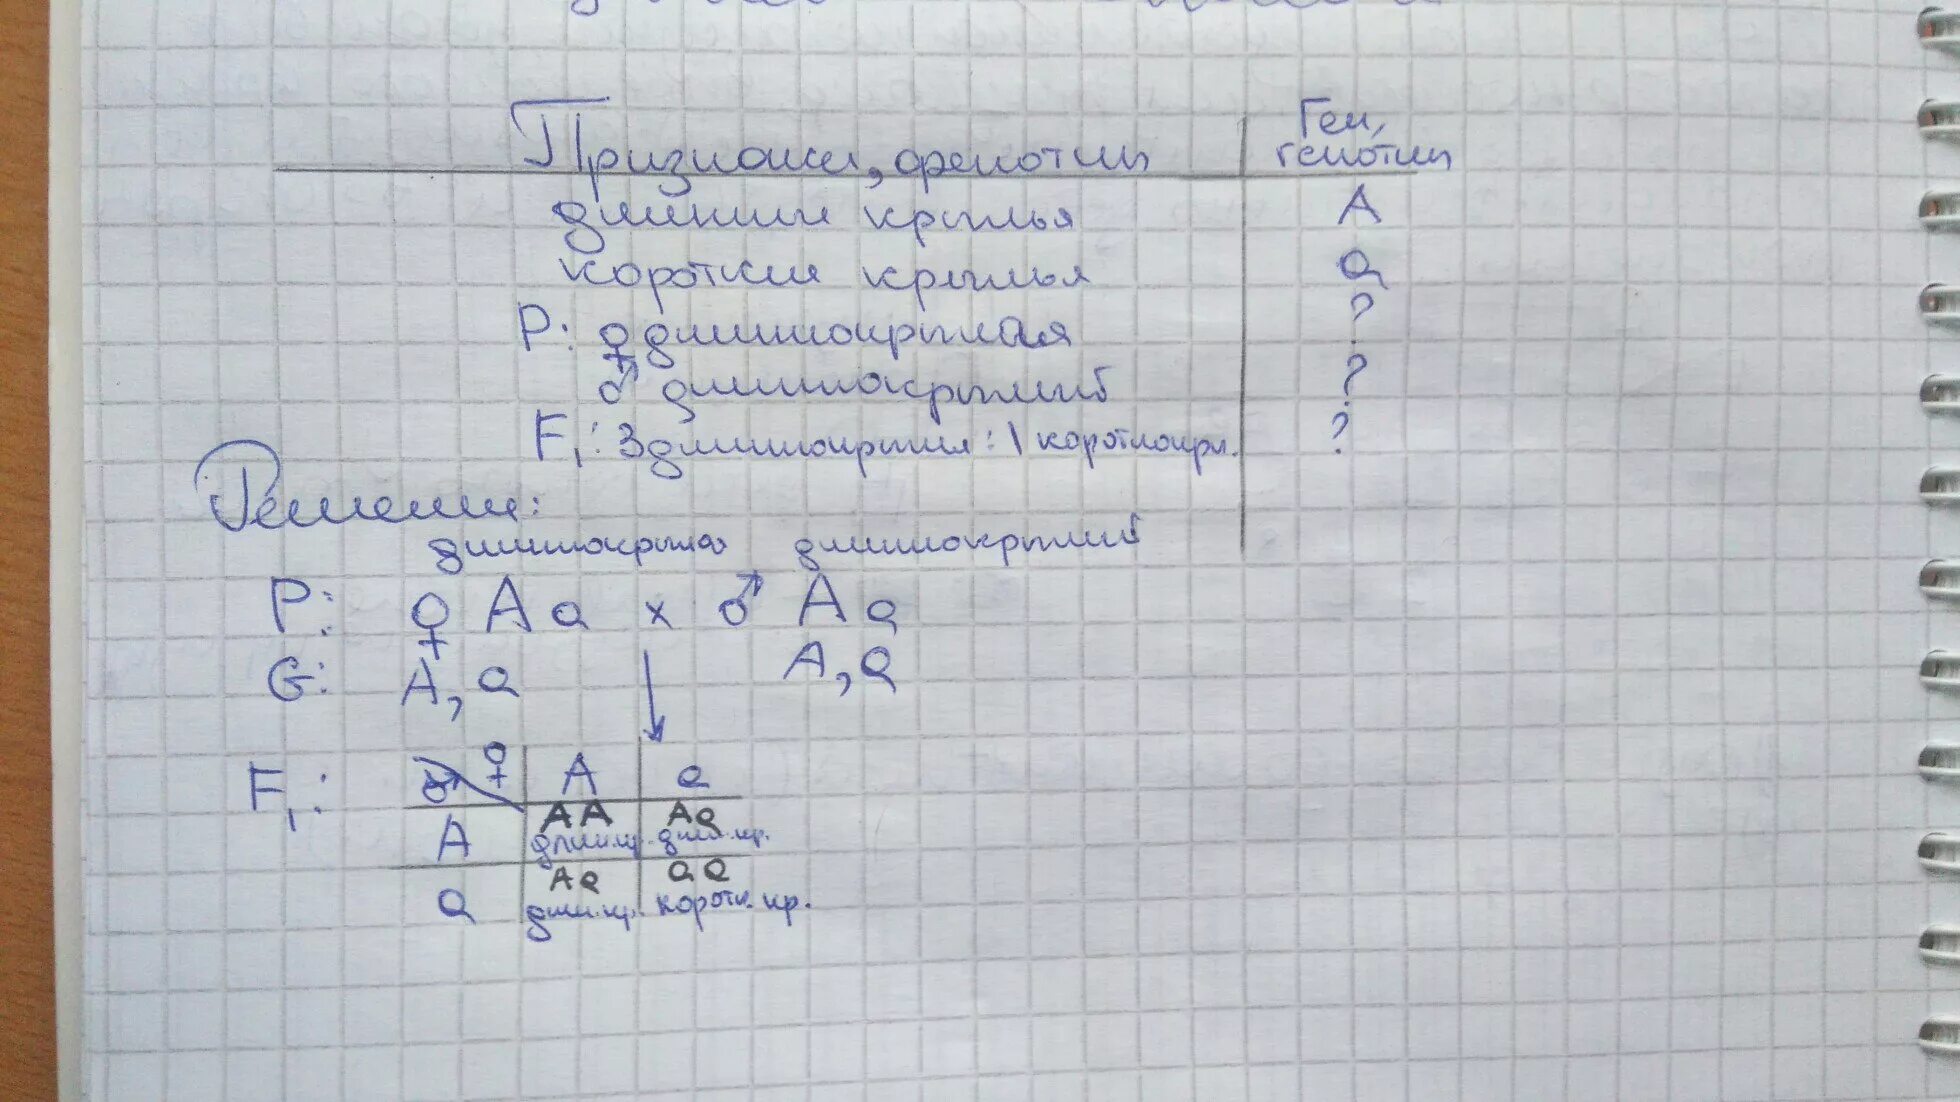 Признаки, фенотип | Ген, генотип
длинные крылья | A
короткие крылья | a
P: ♀ длиннокрылая | ?
♂ длиннокрылый | ?
F₁: 3 длиннокрылых : 1 коротокрыл. | ?
Решение:
длиннокрылая длиннокрылый
P: ♀ Aa x ♂ Aa
G: A, a A, a
F₁: ♂ ♀ A a
A AA Aa
длин.кр. длин.кр.
a Aa aa
длин.кр. коротк. кр.